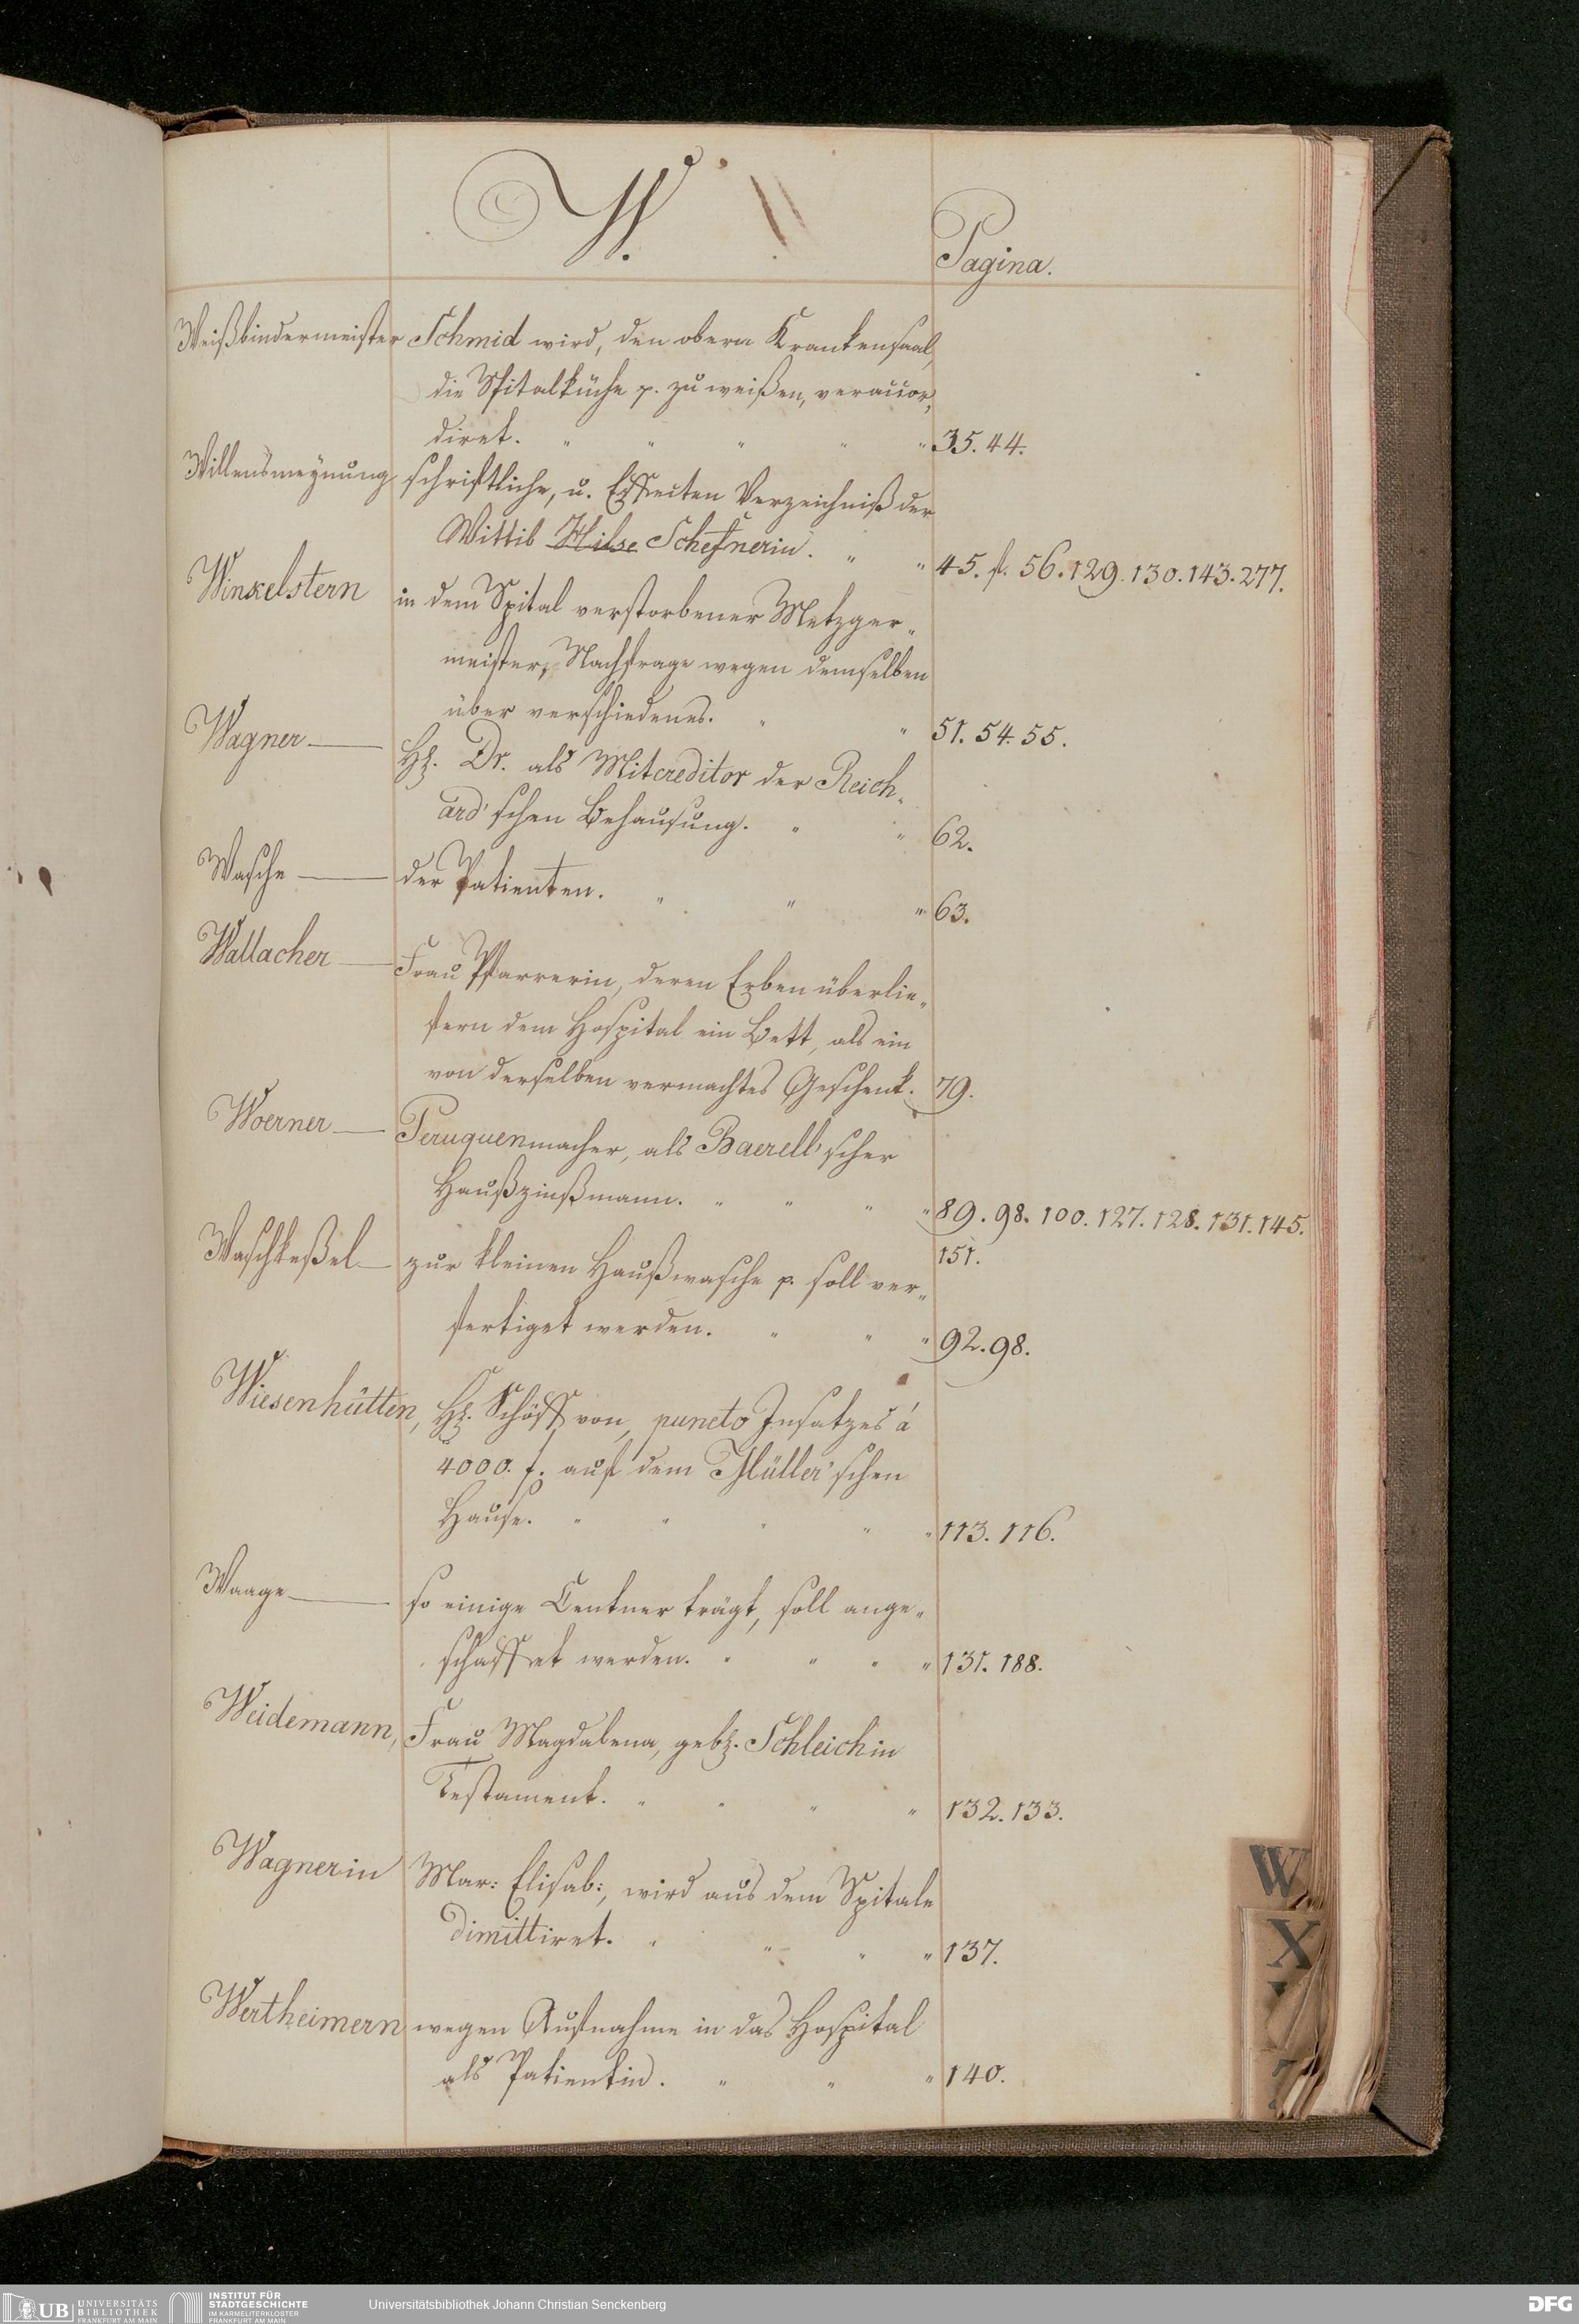 W.
Pagina.
Weißbindermeister Schmid wird, den obern Krankensaal,
die Spitalküche p. zu weißen, veraccor,
diret. " " " " " 35. 44.
Willensmeynung schriftliche, u. Effecten Verzeichniß der
Wittib Hilse Schefnerin. " " 45. f. 56. 129. 130. 143. 277.
Winkelstern in dem Spital verstorbener Metzger„
meister, Nachfrage wegen demselben
über verschiedenes. " " 51. 54. 55.
Wagner — Hr. Dr. als Mitcreditor der Reich„
ard'schen Behausung. " " 62.
Wasche — der Patienten. " " " 63.
Wallacher — Frau Pfarrerin, deren Erben überlie„
fern dem Hospital ein Bett, als ein
von derselben vermachtes Geschenk. 79.
Woerner — Peruquenmacher, als Baerell'scher
Haußzinßmann. " " " " 89. 98. 100. 127. 128. 131. 145.
151.
Waschkeßel — zur kleinen Haußwasche p. soll ver„
fertiget werden. " " " 92. 98.
Wiesenhütten, Hr. Schöff von, puncto Insatzes á
4000. f. auf dem Müller'schen
Hause. " " " " " 113. 116.
Waage — so einige Centner trägt, soll ange„
schaffet werden. " " " " 131. 188.
Weidemann, Frau Magdalena, gebr. Schleichin
Testament. " " " " 132. 133.
Wagnerin Mar: Elisab:, wird aus dem Spitale
dimittiret. " " " " 137.
Wertheimern wegen Aufnahme in das Hospital
als Patientin. " " " 140.
W
X
UB UNIVERSITÄTS BIBLIOTHEK FRANKFURT AM MAIN
INSTITUT FÜR STADTGESCHICHTE IM KARMELITERKLOSTER FRANKFURT AM MAIN
Universitätsbibliothek Johann Christian Senckenberg
DFG